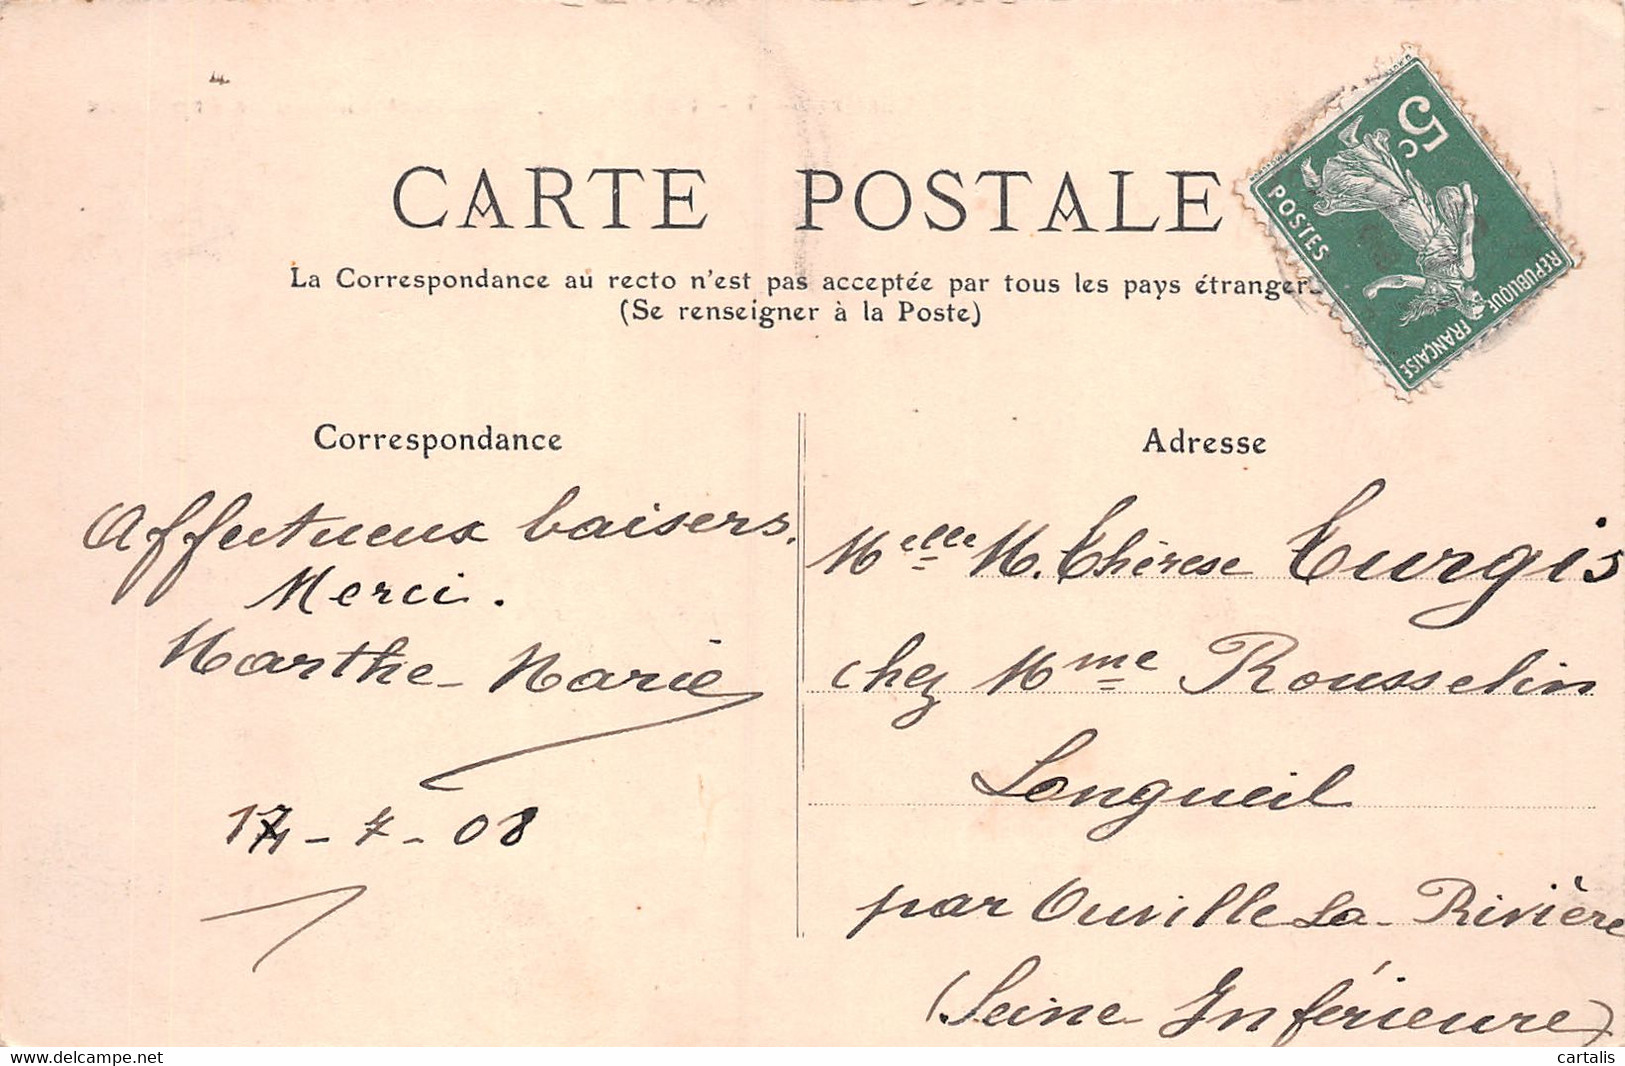 CARTE POSTALE
La Correspondance au recto n'est pas acceptée par tous les pays étrangers
(Se renseigner à la Poste)
5c
POSTES
REPUBLIQUE FRANÇAISE
Correspondance
Affectueux baisers.
Merci.
Marthe-Marie
17-7-08
Adresse
Melle M. Thérèse Turgis
chez Mme Rousselin
Longueil
par Ouville La-Rivière
(Seine-Inférieure)
www.delcampe.net
cartalis